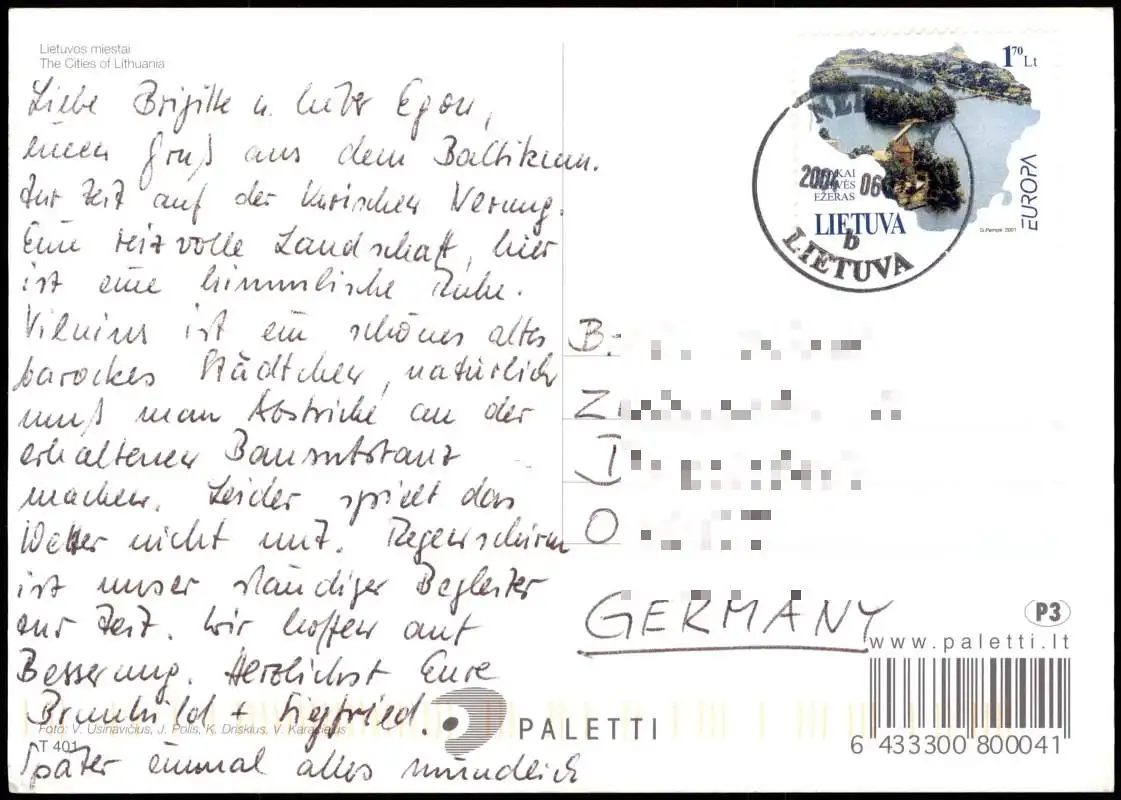 Lietuvos miestai
The Cities of Lithuania
Liebe Brigitte u. lieber Egon,
einen Gruß aus dem Baltikum.
Zur Zeit auf der Kurischen Nerung.
Eine reizvolle Landschaft, hier
ist eine himmlische Ruhe.
Vilnius ist ein schönes altes
barockes Städtchen, natürlich
muß man Abstriche an der
erhaltenen Bausubstanz
machen. Leider spielt das
Wetter nicht mit. Regenschirm
ist unser ständiger Begleiter
zur Zeit. Wir hoffen auf
Besserung. Herzlichst Eure
Brunhild + Siegfried.
Foto: V. Usinavičius, J. Polis, K. Driskius, V. Karačiejus
T 401
Später einmal alles mündlich
PALETTI
1 70 Lt
EŽERAS
LIETUVA
EUROPA
2001
06
b
LIETUVA
B.
Z.
O
GERMANY
P3
www.paletti.lt
6 433300 800041